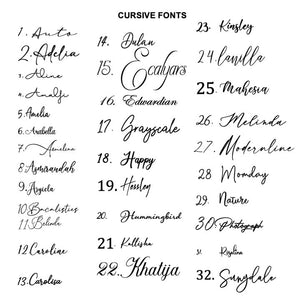 CURSIVE FONTS
1. Auto
2. Adelia
3. Aline
4. Amalfi
5. Amelia
6. Arabella
7. Amelina
8. Asmirandah
9. Aryista
10. Bacalisties
11. Belinda
12. Caroline
13. Carolisa
14. Dulan
15. Ecolyars
16. Edwardian
17. Grayscale
18. Happy
19. Hossley
20. Hummingbird
21. Kallisha
22. Khatija
23. Kinsley
24. lavilla
25. Mahesia
26. Melinda
27. Modernline
28. Monday
29. Nature
30. Photograph
31.
32. Sunydale